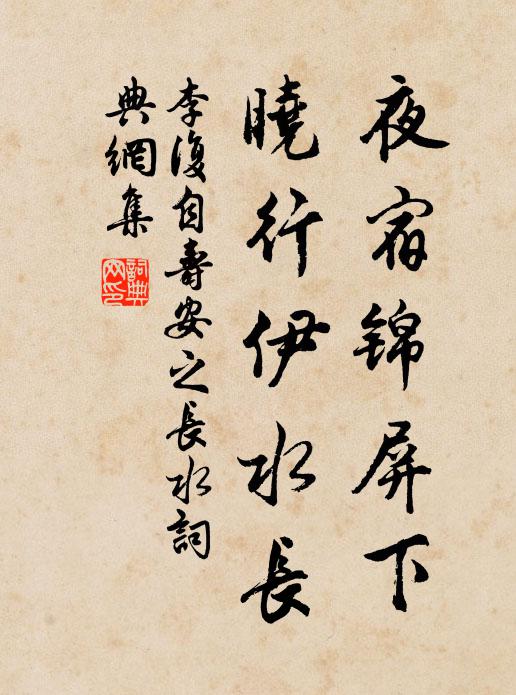 夜宿锦屏下
曉行伊水長
李復自壽安之長水詞
典網集
詞典
网印